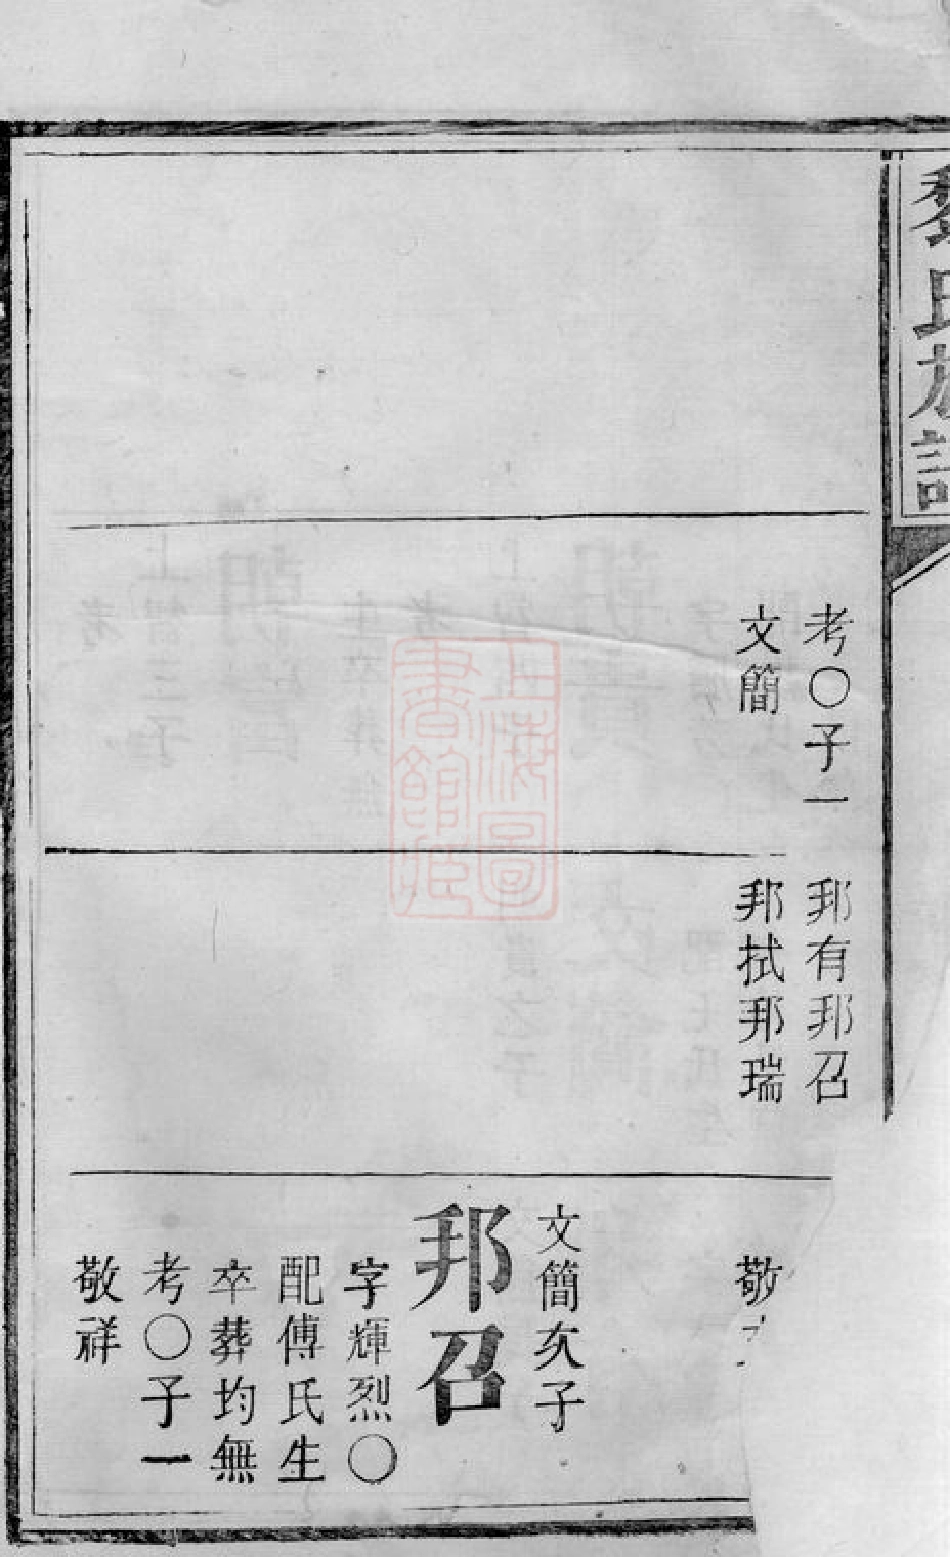 氏族譜
考〇子一
文簡
邦有邦召
邦拭邦瑞
敬
文簡次子
邦召
字輝烈〇
配傅氏生
卒葬均無
考〇子一
敬祥
上海圖
書館藏